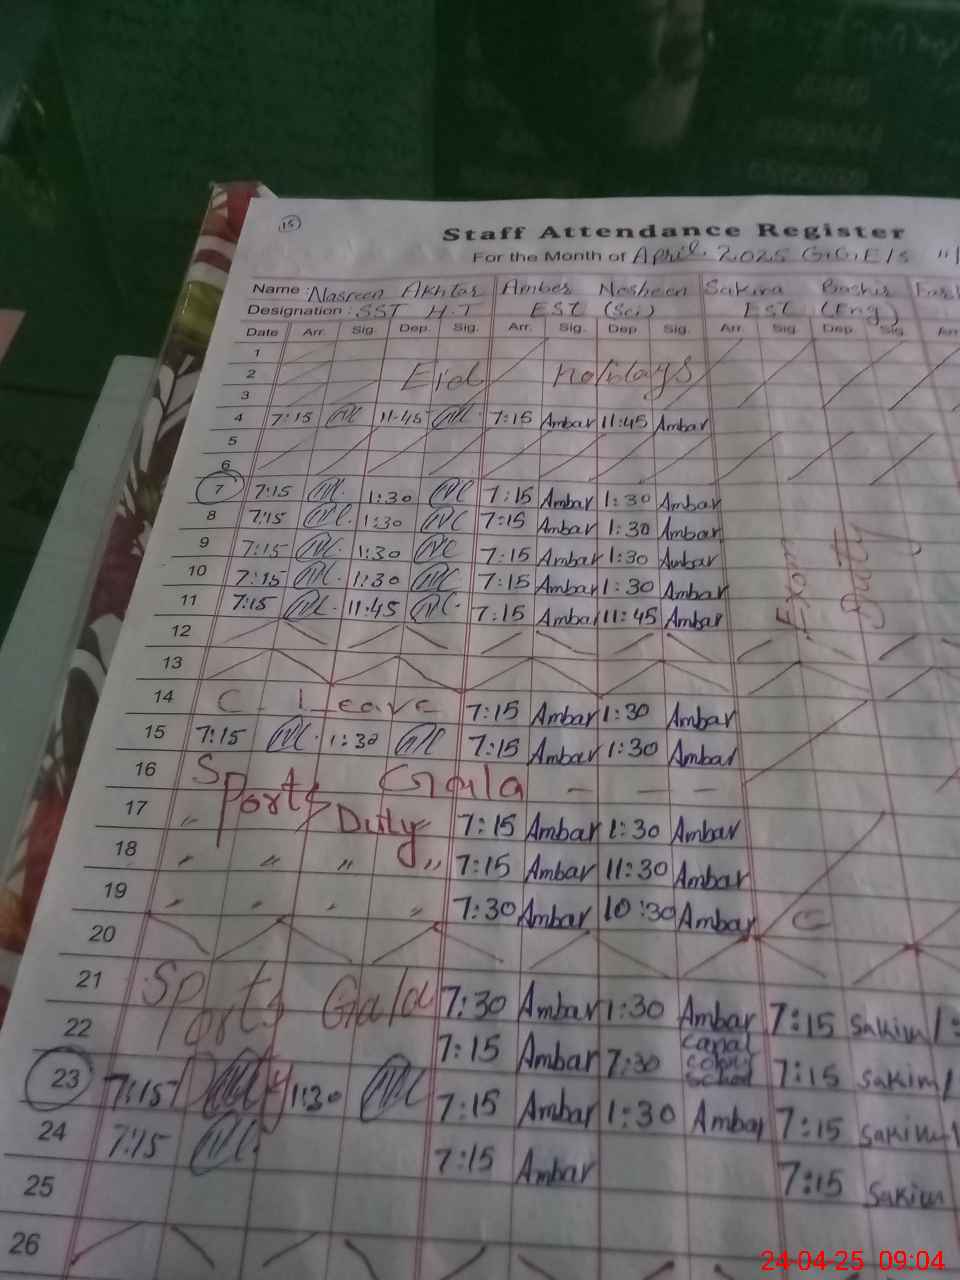 15
Staff Attendance Register
For the Month of April. 2025 G.G.E/S
Name : Nasreen Akhtar Amber Nosheen Sakina Bashir
Designation : SST H.T EST (Sci) EST (Eng)
Date Arr. Sig. Dep. Sig. Arr. Sig. Dep. Sig. Arr. Sig. Dep. Sig. Arr
1
2 Eid holidays
3
4 7:15 11:45 7:15 Ambar 11:45 Ambar
5
6
7 7:15 1:30 7:15 Ambar 1:30 Ambar
8 7:15 1:30 7:15 Ambar 1:30 Ambar
9 7:15 1:30 7:15 Ambar 1:30 Ambar
10 7:15 1:30 7:15 Ambar 1:30 Ambar
11 7:15 11:45 7:15 Ambar 11:45 Ambar
Exam Duty
12
13
14 C. Leave 7:15 Ambar 1:30 Ambar
15 7:15 1:30 7:15 Ambar 1:30 Ambar
16 Sports Gala — — —
17 " Duty " 7:15 Ambar 1:30 Ambar
18 " " " " 7:15 Ambar 11:30 Ambar
19 " " " " 7:30 Ambar 10:30 Ambar C
20
21 Sports Gala 7:30 Ambar 1:30 Ambar 7:15 Sakina
22 Duty 7:15 Ambar 7:30 canal colony school 7:15 Sakina
23 7:15 1:30 7:15 Ambar 1:30 Ambar 7:15 Sakina
24 7:15 7:15 Ambar 7:15 Sakina
25
26
24-04-25 09:04